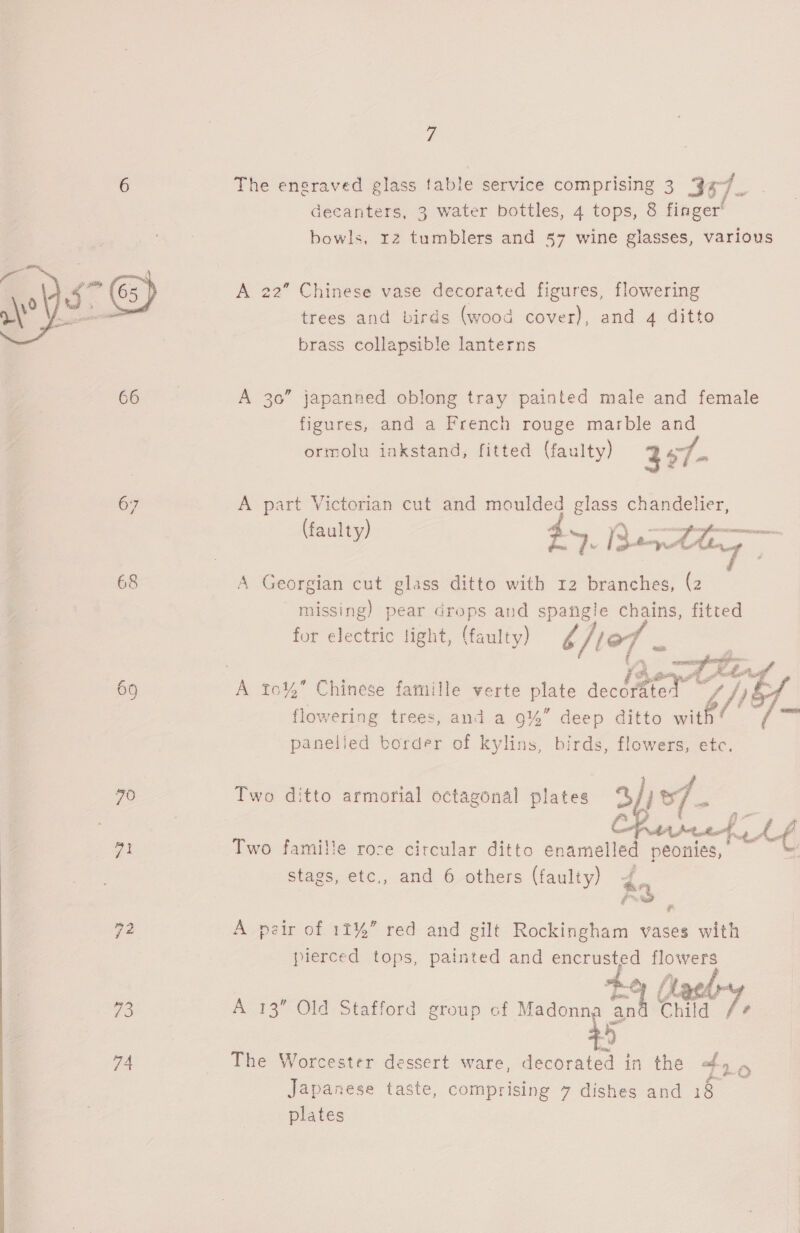 7
6 The engraved glass table service comprising 3 35/-
decanters, 3 water bottles, 4 tops, 8 finger
bowls, 12 tumblers and 57 wine glasses, various
65 A 22" Chinese vase decorated figures, flowering
trees and birds (wood cover), and 4 ditto
brass collapsible lanterns
66 A 30" japanned oblong tray painted male and female
figures, and a French rouge marble and
ormolu inkstand, fitted (faulty) 35/-
67 A part Victorian cut and moulded glass chandelier,
(faulty)
68 A Georgian cut glass ditto with 12 branches, (2
missing) pear drops and spangle chains, fitted
for electric light, (faulty) 6/10/-
69 A 10½" Chinese famille verte plate decorated
flowering trees, and a 9½" deep ditto with
panelled border of kylins, birds, flowers, etc.
70 Two ditto armorial octagonal plates
71 Two famille rose circular ditto enamelled peonies,
stags, etc., and 6 others (faulty)
72 A pair of 11½" red and gilt Rockingham vases with
pierced tops, painted and encrusted flowers
73 A 13" Old Stafford group of Madonna and Child
74 The Worcester dessert ware, decorated in the
Japanese taste, comprising 7 dishes and 18
plates